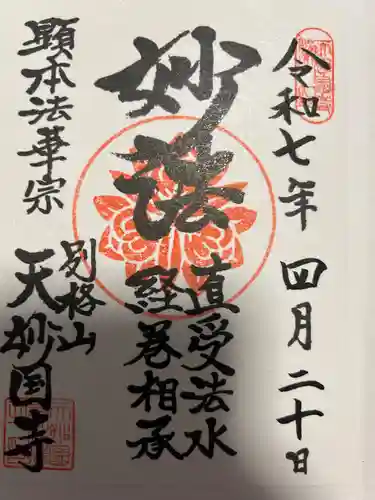 令和七年 四月二十日
妙法
直受法水
経巻相承
顕本法華宗
別格山
天妙国寺